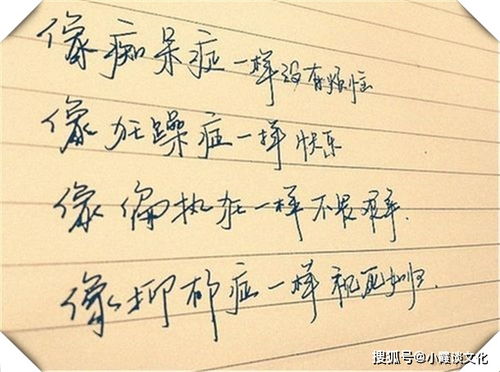 像痴呆症一样没有烦恼
像狂躁症一样快乐
像偏执狂一样不畏艰辛.
像抑郁症一样视死如归.
搜狐号@小霞谈文化